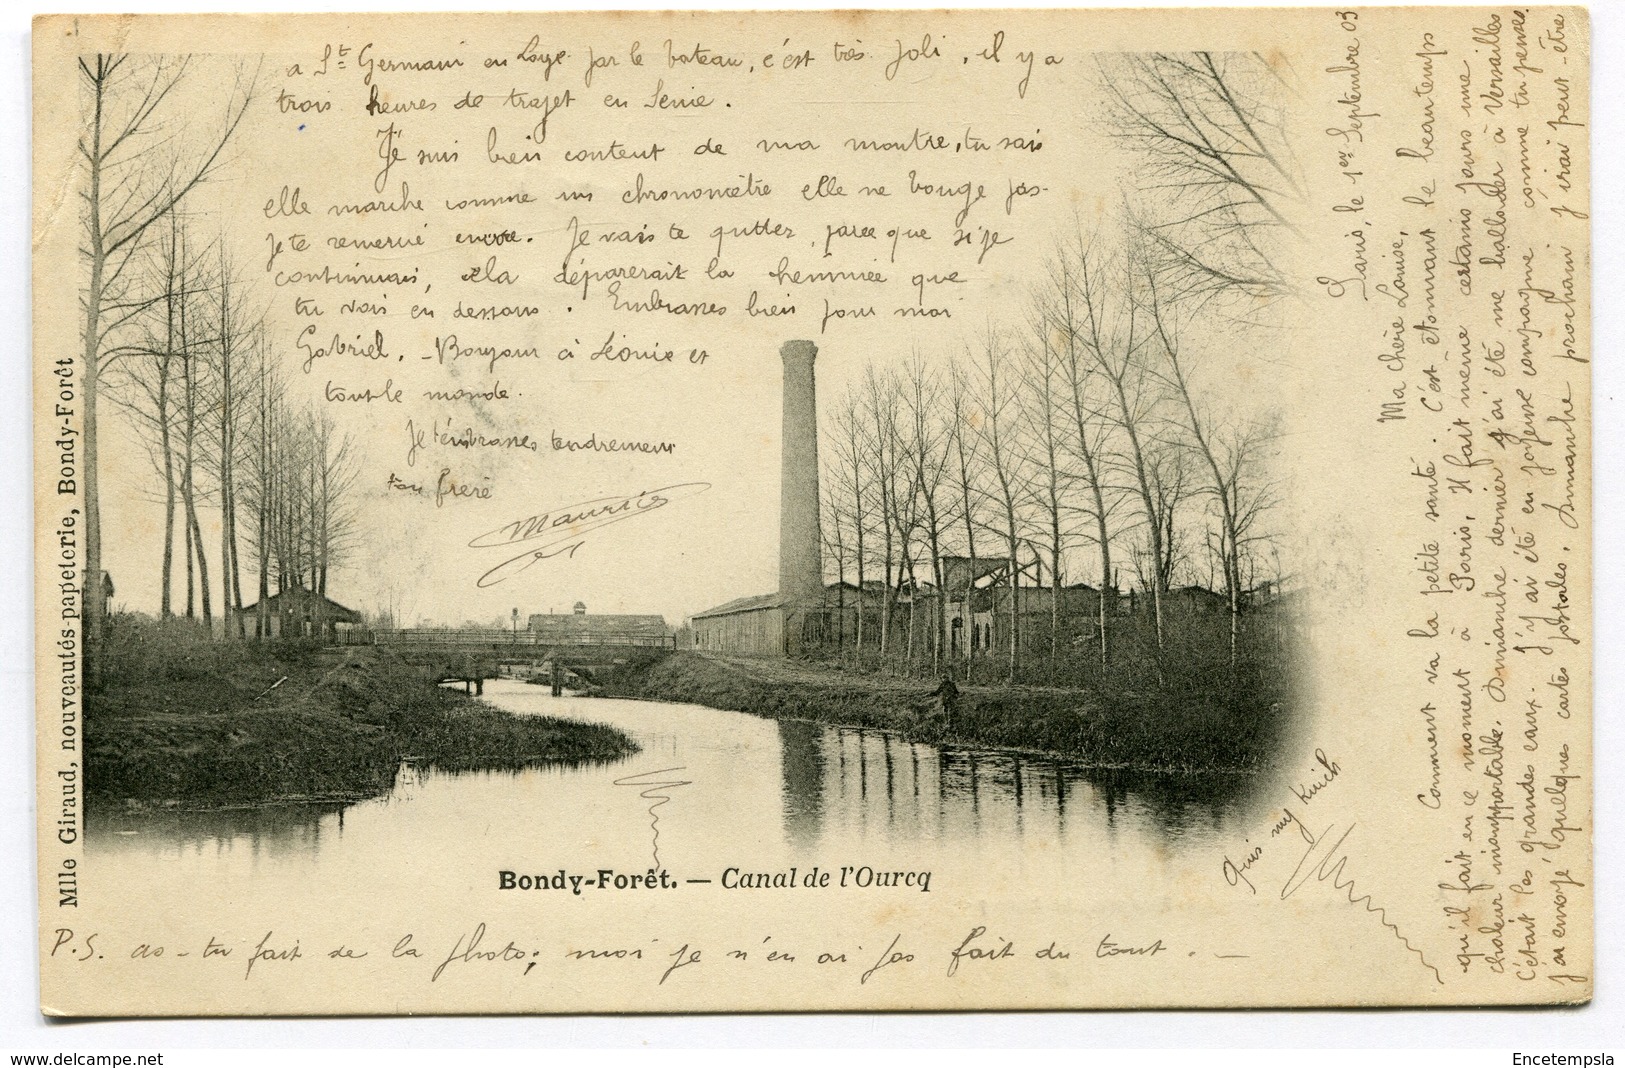 Paris, le 1er Septembre 03
Ma chère Louise,
Comment va la petite santé. C'est étonnant le beau temps
qu'il fait en ce moment à Paris, il fait même certains jours une
chaleur insupportable. Dimanche dernier j'ai été me ballader à Versailles
c'était les grandes eaux. J'y ai été en joyeuse compagnie comme tu penses.
J'ai envoyé quelques cartes postales. Dimanche prochain j'irai peut-être
a St Germain en Laye par le bateau, c'est très joli, il y a
trois heures de trajet en Seine.
Je suis bien content de ma montre, tu sais
elle marche comme un chronomètre elle ne bouge pas.
Je te remercie encore. Je vais te quitter, parce que si je
continuais, cela déparerait la cheminée que
tu vois en dessous. Embrasses bien pour moi
Gabriel. - Bonjour à Léonie et
tout le monde.
Je t'embrasses tendrement
ton frère
Maurice
P.S. as-tu fait de la photo; moi je n'en ai pas fait du tout. -
my
Bondy-Forêt. — Canal de l'Ourcq
Mlle Giraud, nouveautés-papeterie, Bondy-Forêt
www.delcampe.net
Encetempsla